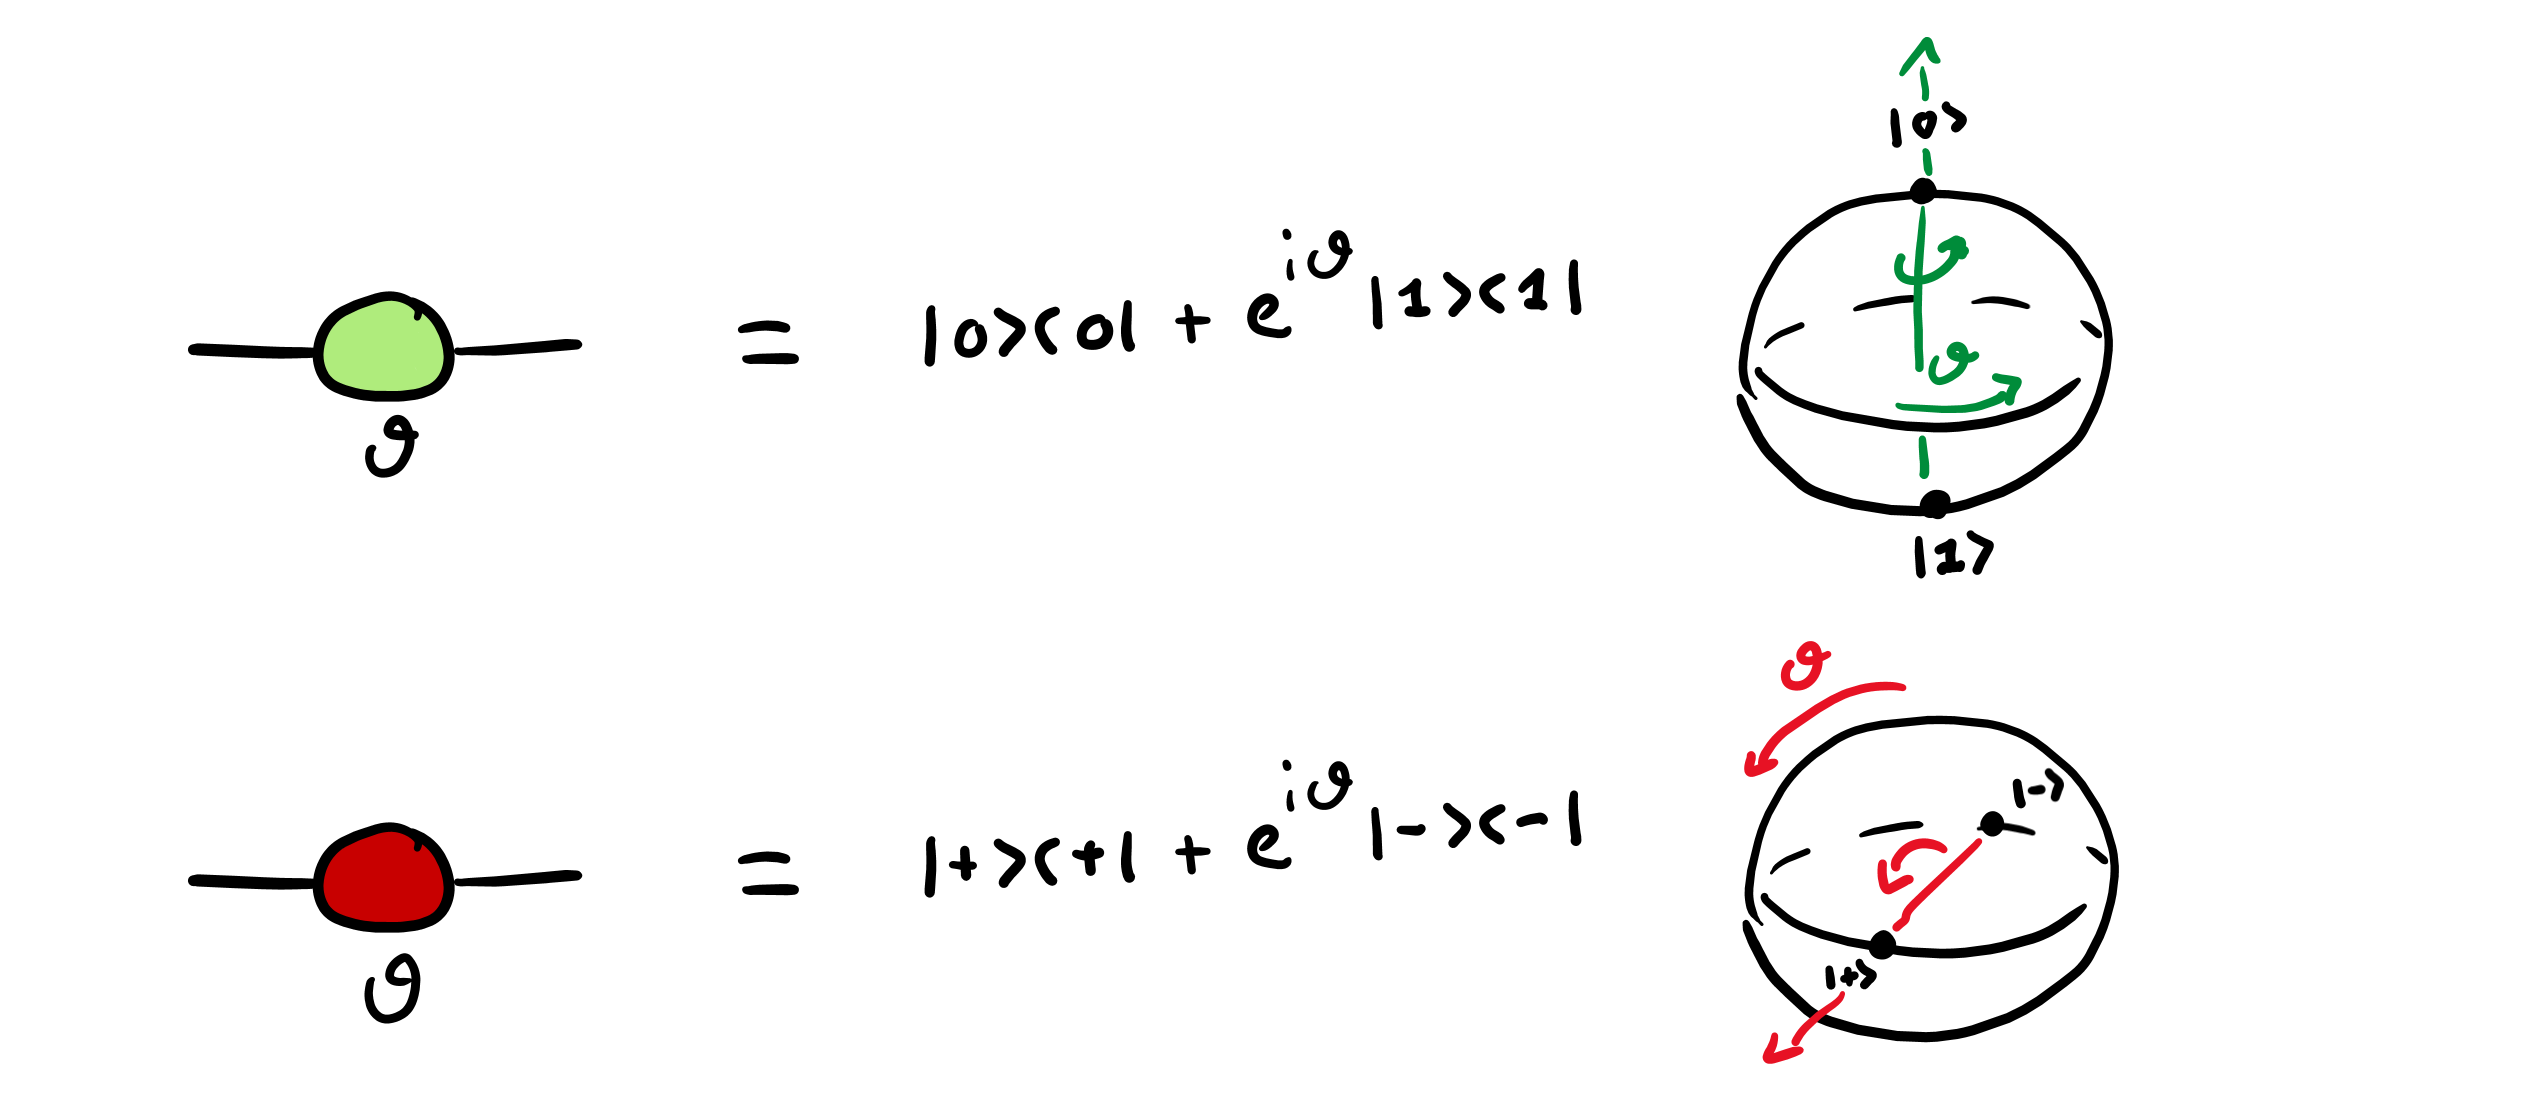 |0>
= |0><0| + e^{iϑ} |1><1|
ϑ
ϑ
|1>
ϑ
|->
= |+><+| + e^{iϑ} |-><-|
|+>
ϑ